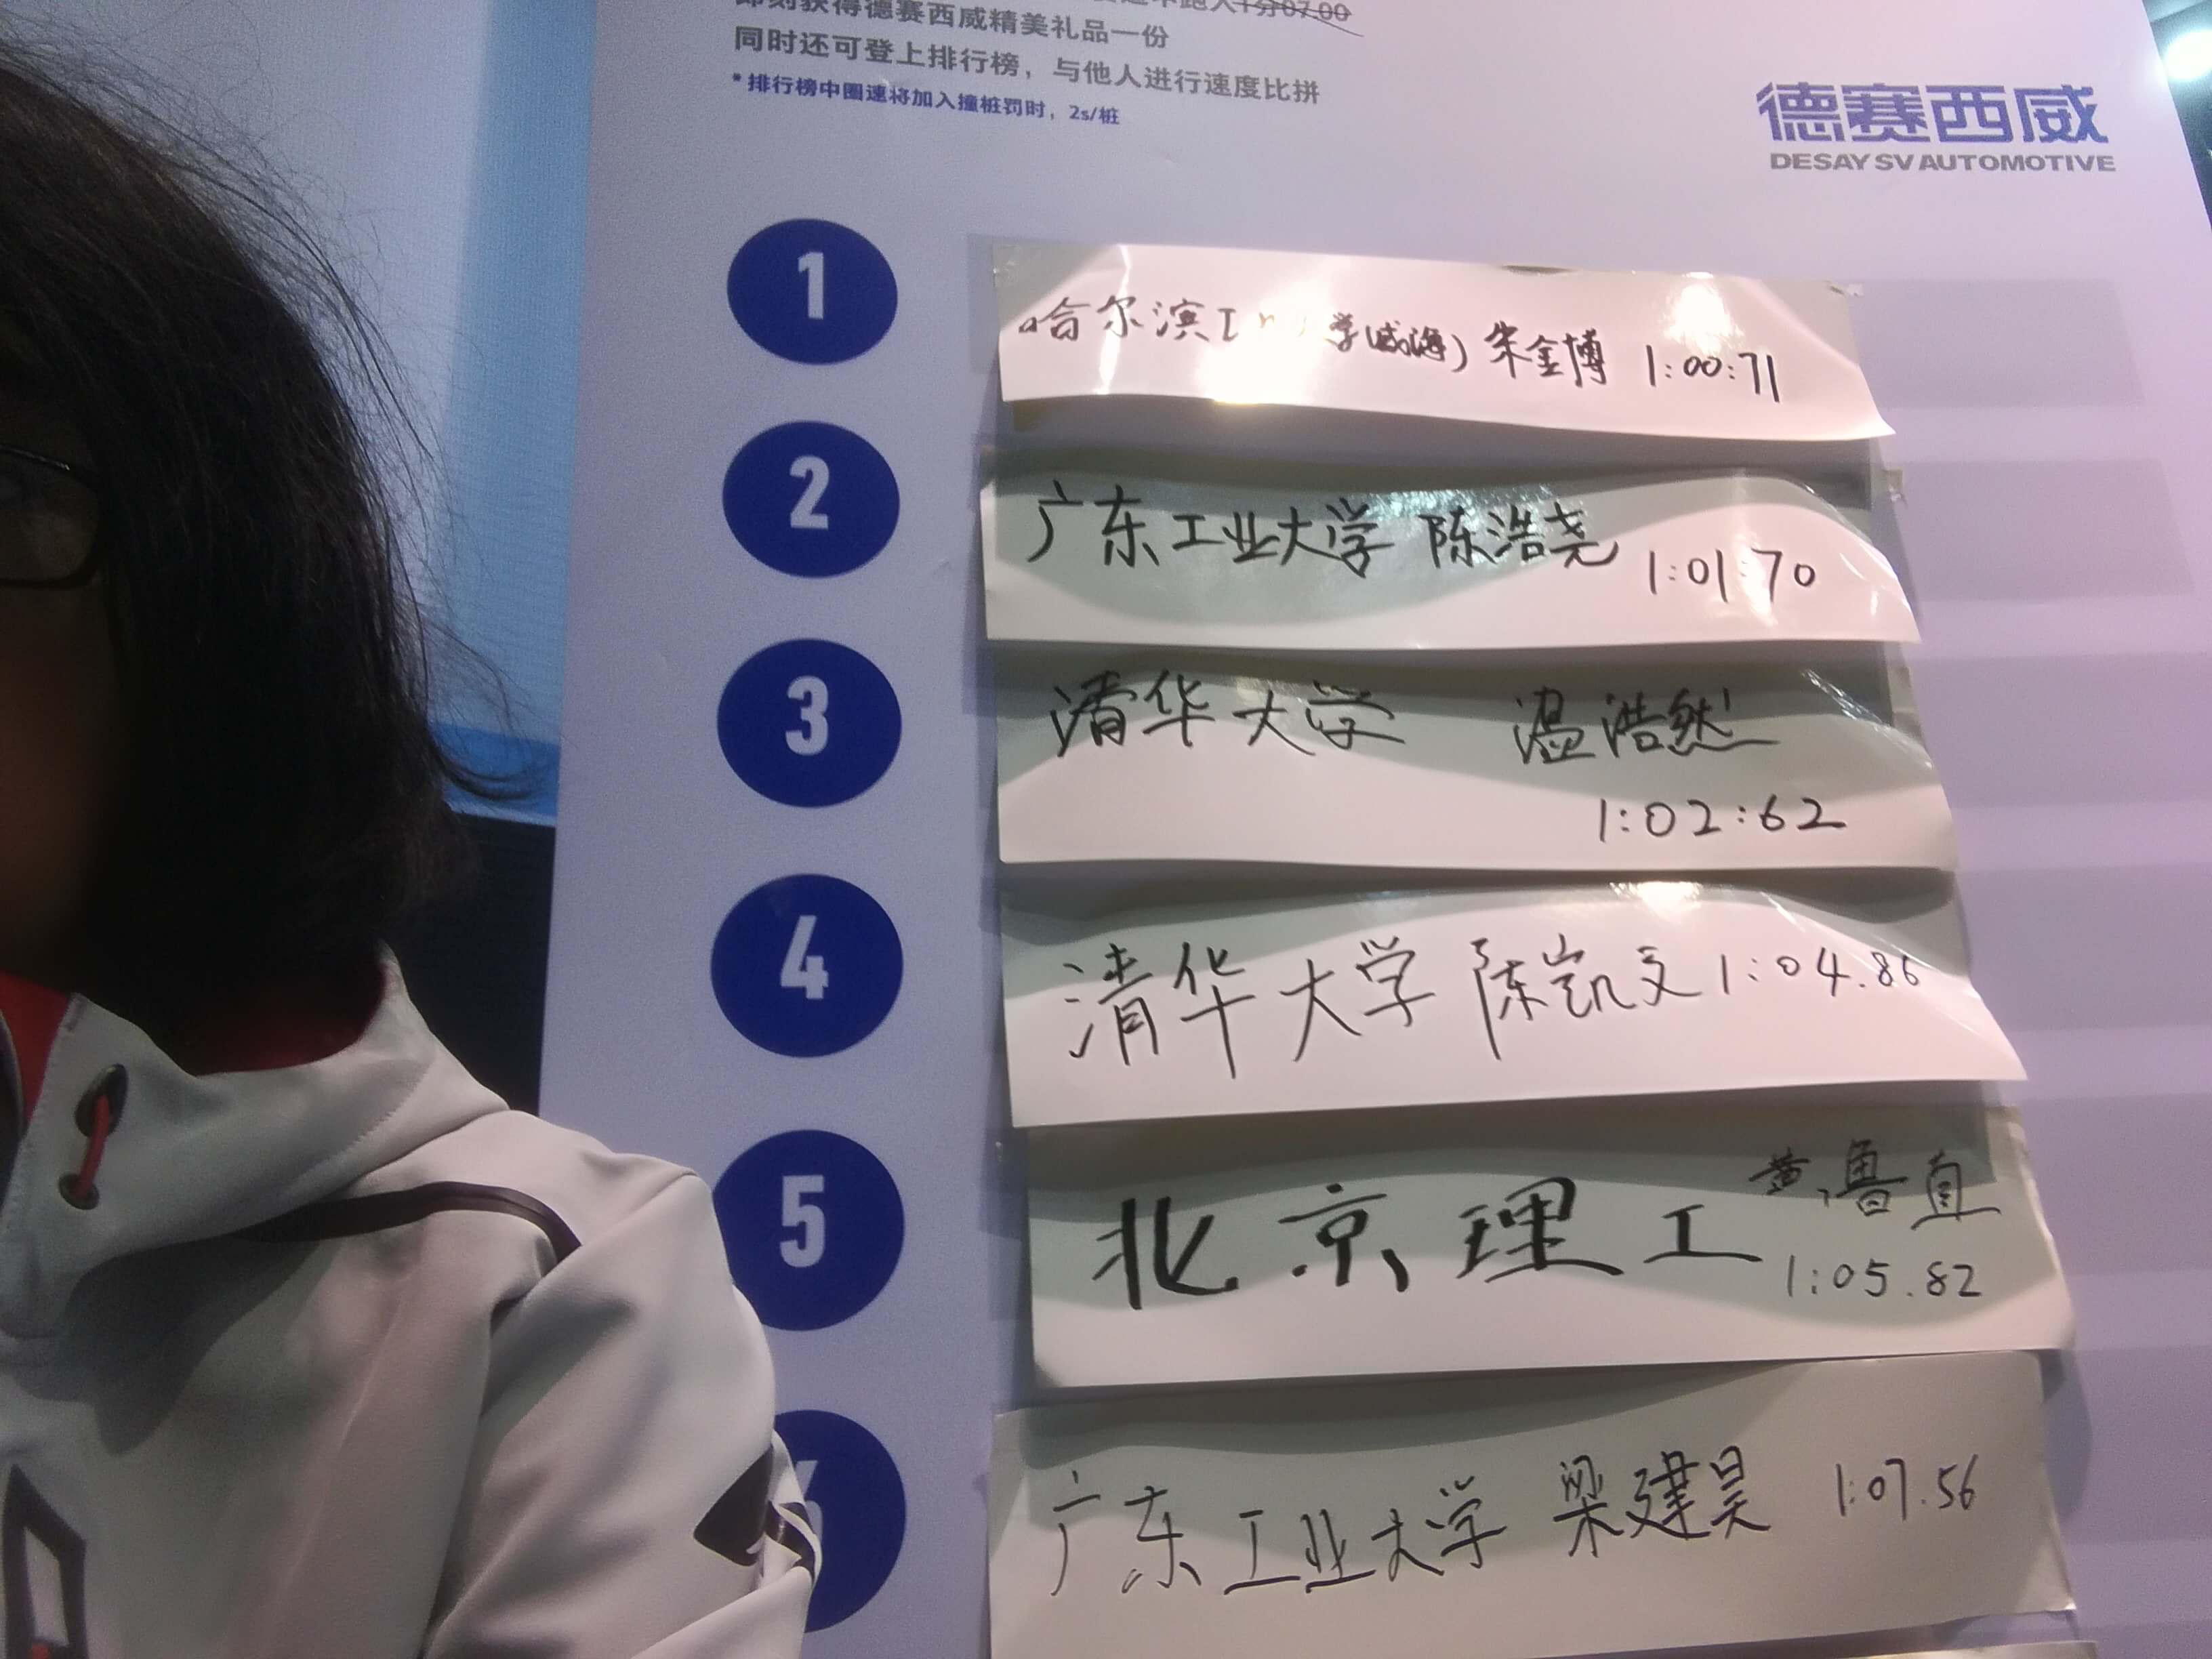 1分07.00
即刻获得德赛西威精美礼品一份
同时还可登上排行榜，与他人进行速度比拼
*排行榜中圈速将加入撞桩罚时，2s/桩
德赛西威
DESAY SV AUTOMOTIVE
1
哈尔滨工 学(威海) 朱金博 1:00:71
2
广东工业大学 陈浩尧 1:01:70
3
清华大学 温浩然
1:02:62
4
清华大学 陈凯文 1:04.86
5
北京理工 黄鲁直
1:05.82
6
广东工业大学 梁建昊 1:07.56